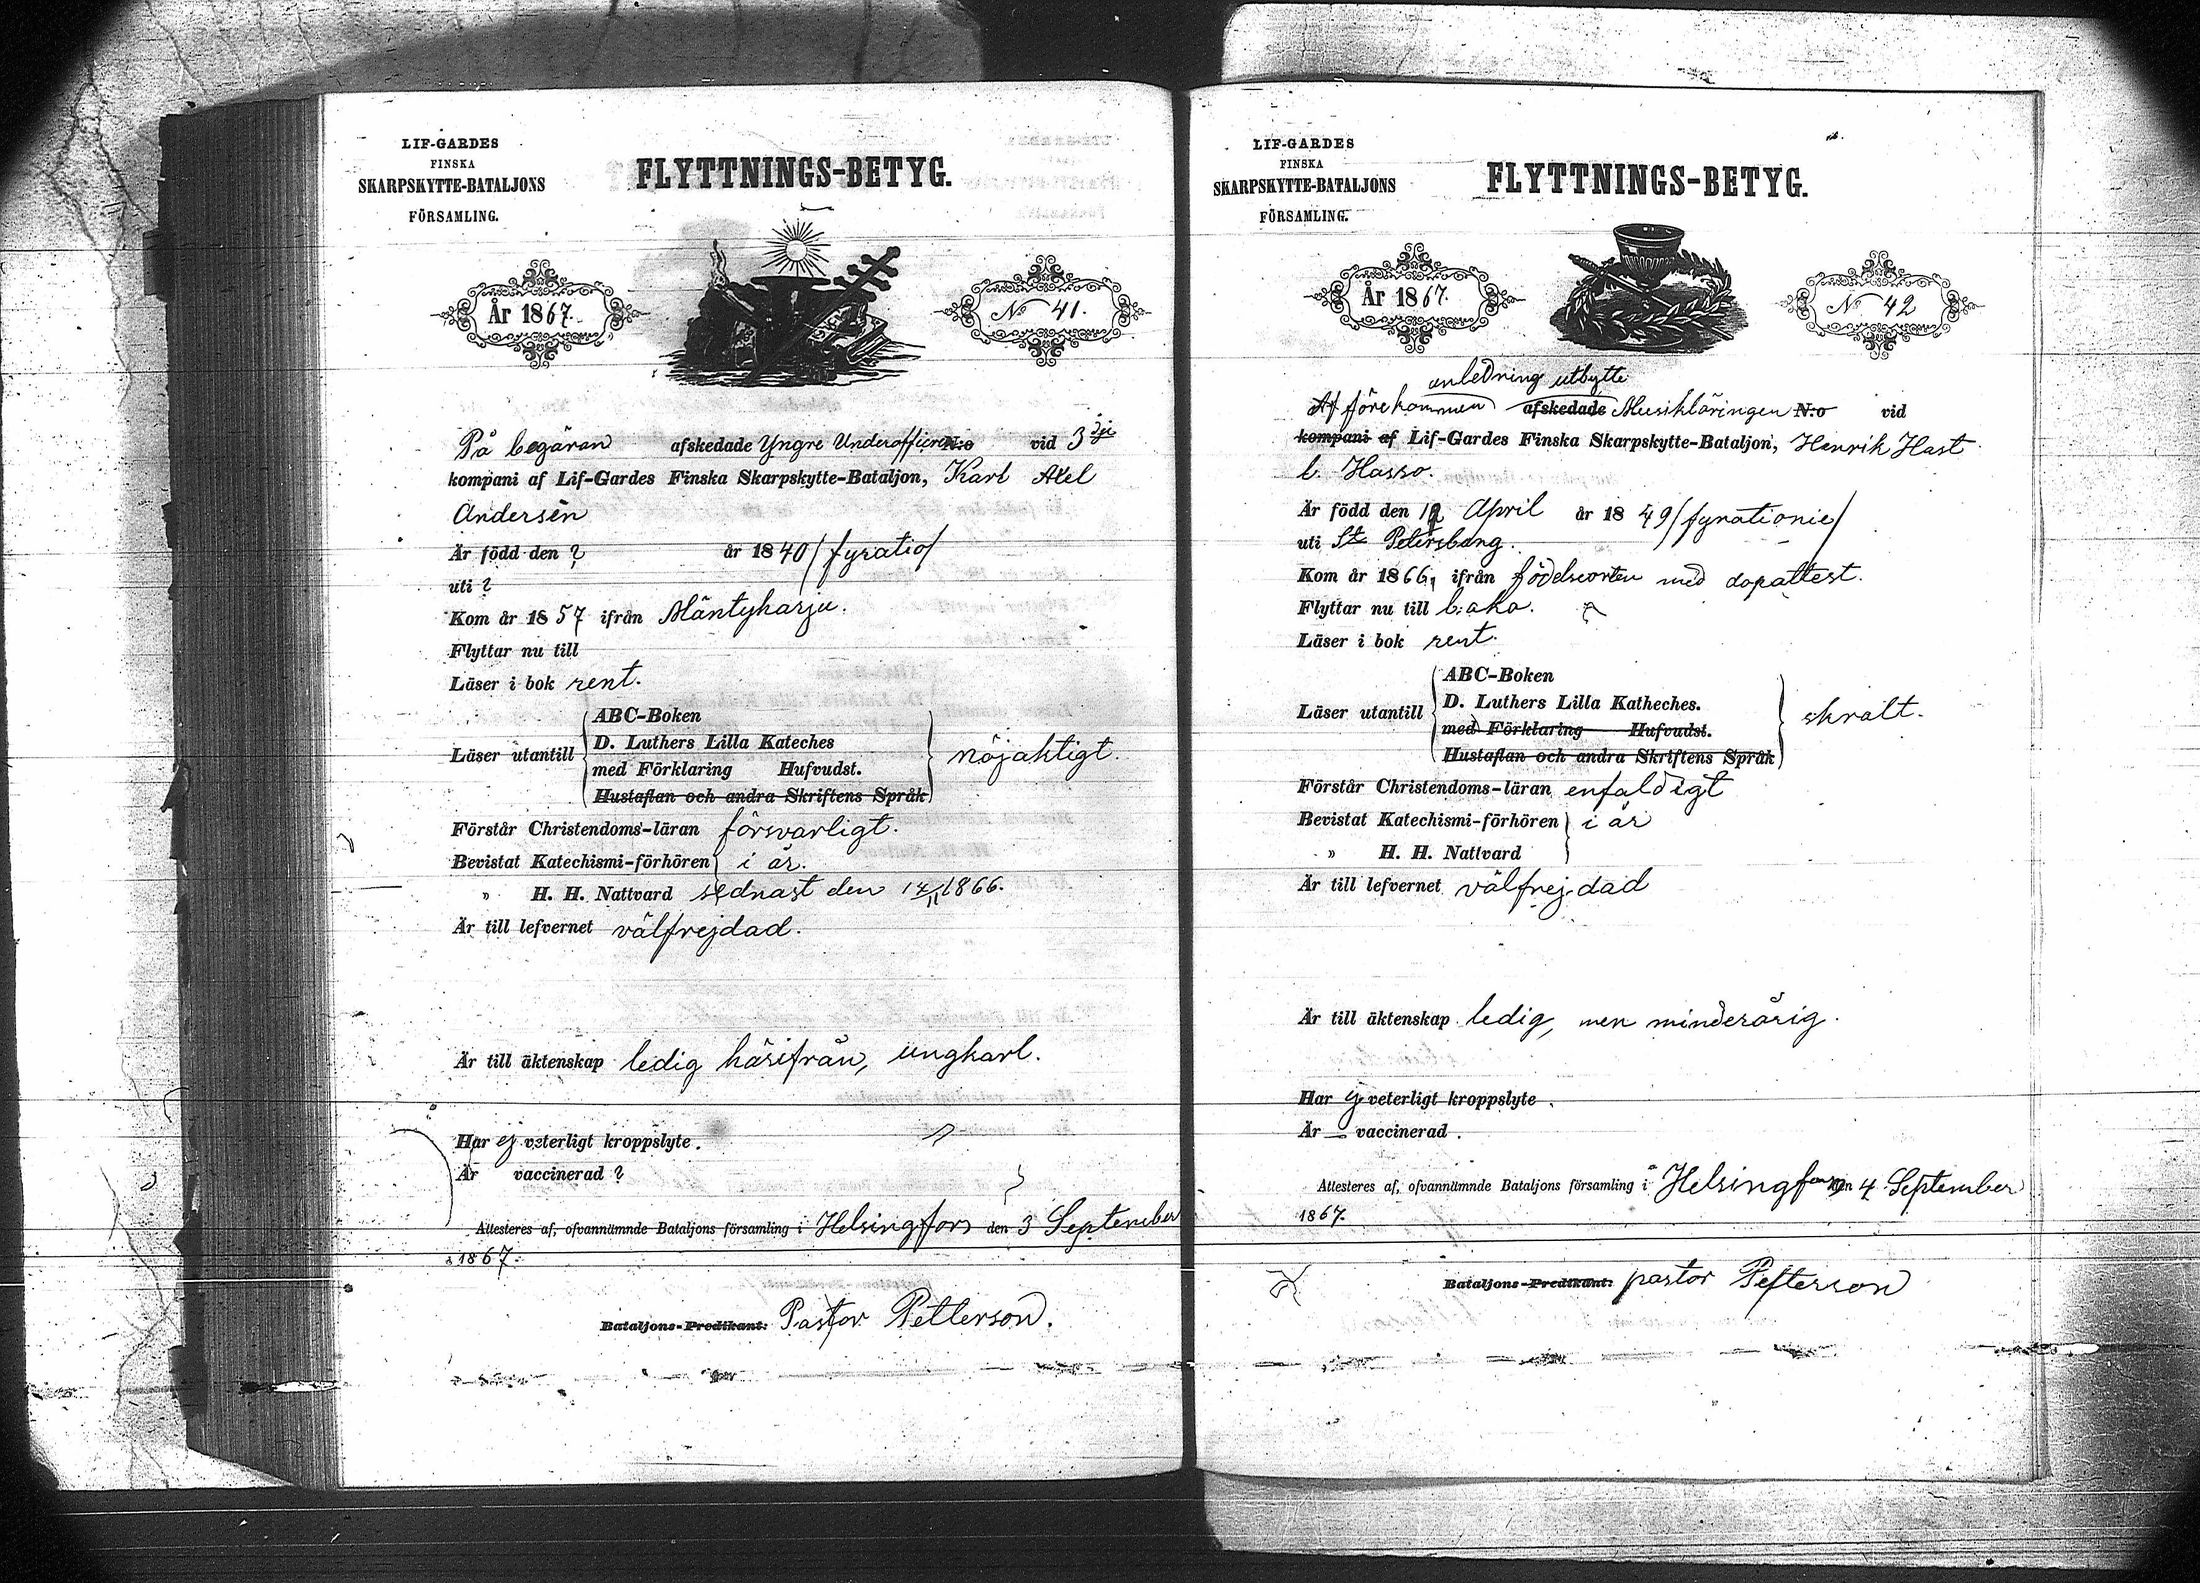 LIF-GARDES
FINSKA
SKARPSKYTTE-BATALJONS
FÖRSAMLING.
FLYTTNINGS-BETYG.
År 1867.
No 41.
På begäran afskedade Yngre Underofficern N:o vid 3dje
kompani af Lif-Gardes Finska Skarpskytte-Bataljon, Karl Axel
Andersén
Är född den ? år 1840 /fyratio/
uti ?
Kom år 1857 ifrån Mäntyharju.
Flyttar nu till
Läser i bok rent.
Läser utantill
ABC-Boken
D. Luthers Lilla Kateches
med Förklaring Hufvudst.
Hustaflan och andra Skriftens Språk
nöjaktigt.
Förstår Christendoms-läran försvarligt.
Bevistat Katechismi-förhören i år.
» H. H. Nattvard sednast den 14/11 1866.
Är till lefvernet välfrejdad.
Är till äktenskap ledig härifrån, ungkarl.
Har ej veterligt kroppslyte.
Är vaccinerad ?
Attesteres af, ofvannämnde Bataljons församling i Helsingfors den 3 September
1867.
Bataljons-Predikant: Pastor Petterson.
LIF-GARDES
FINSKA
SKARPSKYTTE-BATALJONS
FÖRSAMLING.
FLYTTNINGS-BETYG.
År 1867.
No 42
anledning utbytte
Af förekommen afskedade Musikläringen N:o vid
kompani af Lif-Gardes Finska Skarpskytte-Bataljon, Henrik Hast
l. Hasso.
Är född den April år 1849 /fyrationie/
uti St. Petersburg.
Kom år 1866, ifrån födelseorten med dopattest.
Flyttar nu till
Läser i bok rent.
Läser utantill
ABC-Boken
D. Luthers Lilla Katheches.
med Förklaring Hufvudst.
Hustaflan och andra Skriftens Språk
skralt.
Förstår Christendoms-läran enfaldigt
Bevistat Katechismi-förhören i år
» H. H. Nattvard
Är till lefvernet välfrejdad
Är till äktenskap ledig, men minderårig.
Har ej veterligt kroppslyte.
Är – vaccinerad.
Attesteres af, ofvannämnde Bataljons församling i Helsingfors den 4 September
1867.
Bataljons-Predikant: pastor Petterson